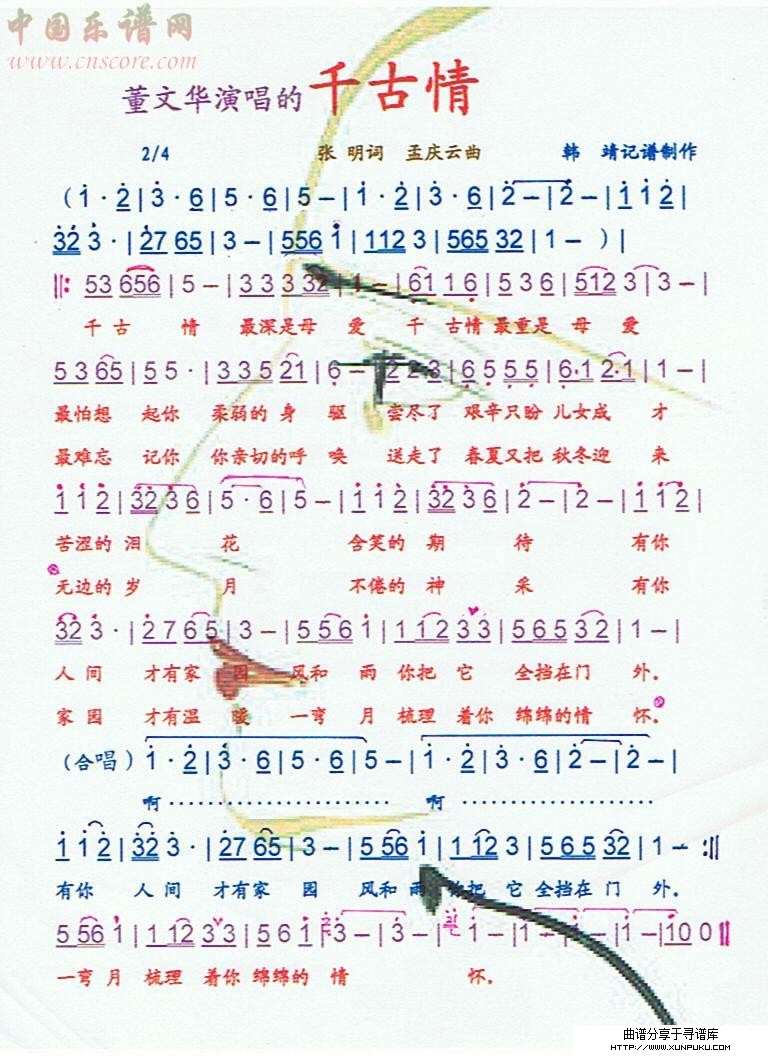 中国乐谱网
www.cnscore.com
董文华演唱的 千古情
2/4 张 明词 孟庆云曲 韩 靖记谱制作
( i · 2 | 3 · 6 | 5 · 6 | 5 – | i · 2 | 3 · 6 | 2 – | 2 – | i i 2 |
32 3 · | 27 65 | 3 – | 556 i | 112 3 | 565 32 | 1 – ) |
‖: 53 656 | 5 – | 3 3 3 32 | 1 – | 61 1 6 | 5 3 6 | 512 3 | 3 – |
千 古 情 最深是母 爱 千 古情 最重是 母 爱
5 3 65 | 5 5 · | 3 3 5 21 | 6 – | 2 2 3 | 6 5 5 5 | 6·1 2·1 | 1 – |
最怕想 起你 柔弱的 身 驱 尝尽了 艰辛只盼 儿女成 才
最难忘 记你 你亲切的呼 唤 送走了 春夏又把 秋冬迎 来
i i 2 | 32 3 6 | 5 · 6 | 5 – | i i 2 | 32 3 6 | 2 – | 2 – | i i 2 |
苦涩的 泪 花 含笑的 期 待 有你
无边的 岁 月 不倦的 神 采 有你
32 3 · | 2 7 6 5 | 3 – | 5 5 6 i | 1 1 2 3 3 | 5 6 5 3 2 | 1 – |
人 间 才有家 园 风和 雨 你把 它 全挡在门 外。
家 园 才有温 暖 一弯 月 梳理 着你 绵绵的情 怀。
(合唱) i · 2 | 3 · 6 | 5 · 6 | 5 – | i · 2 | 3 · 6 | 2 – | 2 – |
啊······················ 啊 ······················
i i 2 | 32 3 · | 27 65 | 3 – | 5 56 i | 1 12 3 | 5 6 5 32 | 1 – :‖
有你 人 间 才有家 园 风和 雨 你把 它 全挡在 门 外。
5 56 i | 1 12 3 3 | 5 6 i | 3 – | 3 – | i – | i – | i – | i – | i0 0 ‖
一弯 月 梳理 着你 绵绵的 情 怀。
曲谱分享于寻谱库
HTTP://WWW.XUNPUKU.COM